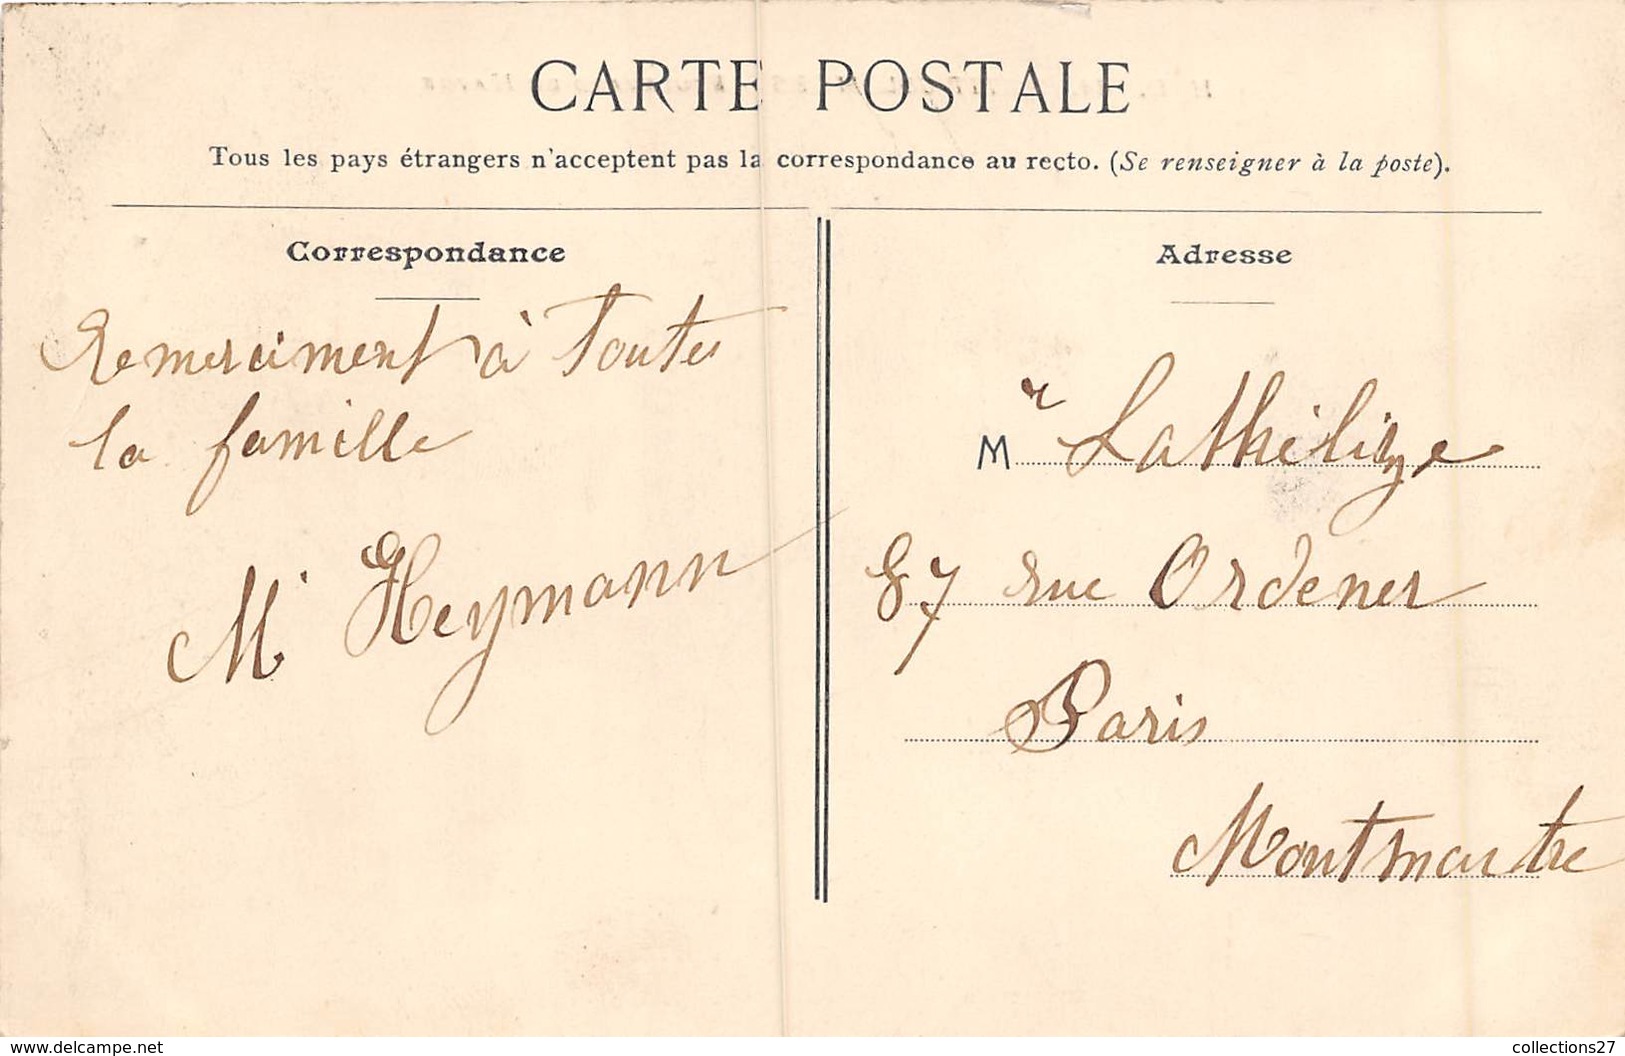 CARTE POSTALE
Tous les pays étrangers n'acceptent pas la correspondance au recto. (Se renseigner à la poste).
Correspondance
Remerciment à toutes
la famille
M. Heymann
Adresse
M r Lathélize
87 rue Ordener
Paris
Montmartre
www.delcampe.net
collections27